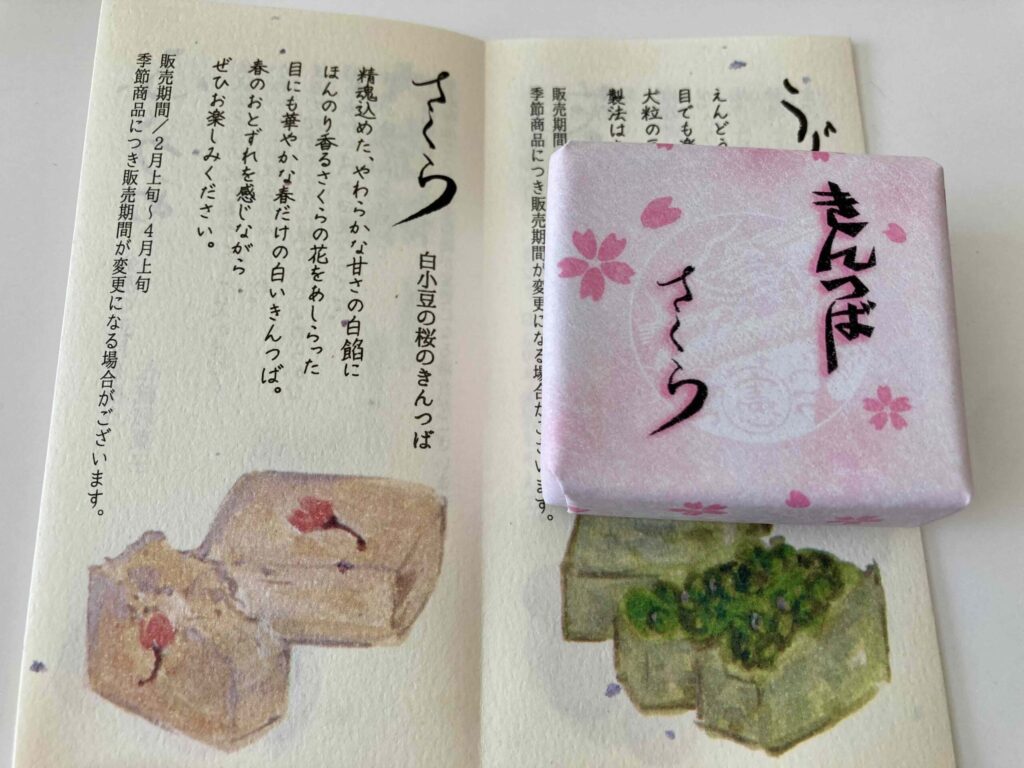 さくら
白小豆の桜のきんつば
精魂込めた、やわらかな甘さの白餡に
ほんのり香るさくらの花をあしらった
目にも華やかな春だけの白いきんつば。
春のおとずれを感じながら
ぜひお楽しみください。
販売期間／2月上旬〜4月上旬
季節商品につき販売期間が変更になる場合がございます。
うぐ
えんどう
目でも楽
大粒の
製法は
販売期間
季節商品につき販売期間が変更になる場合がございます。
きんつば
さくら